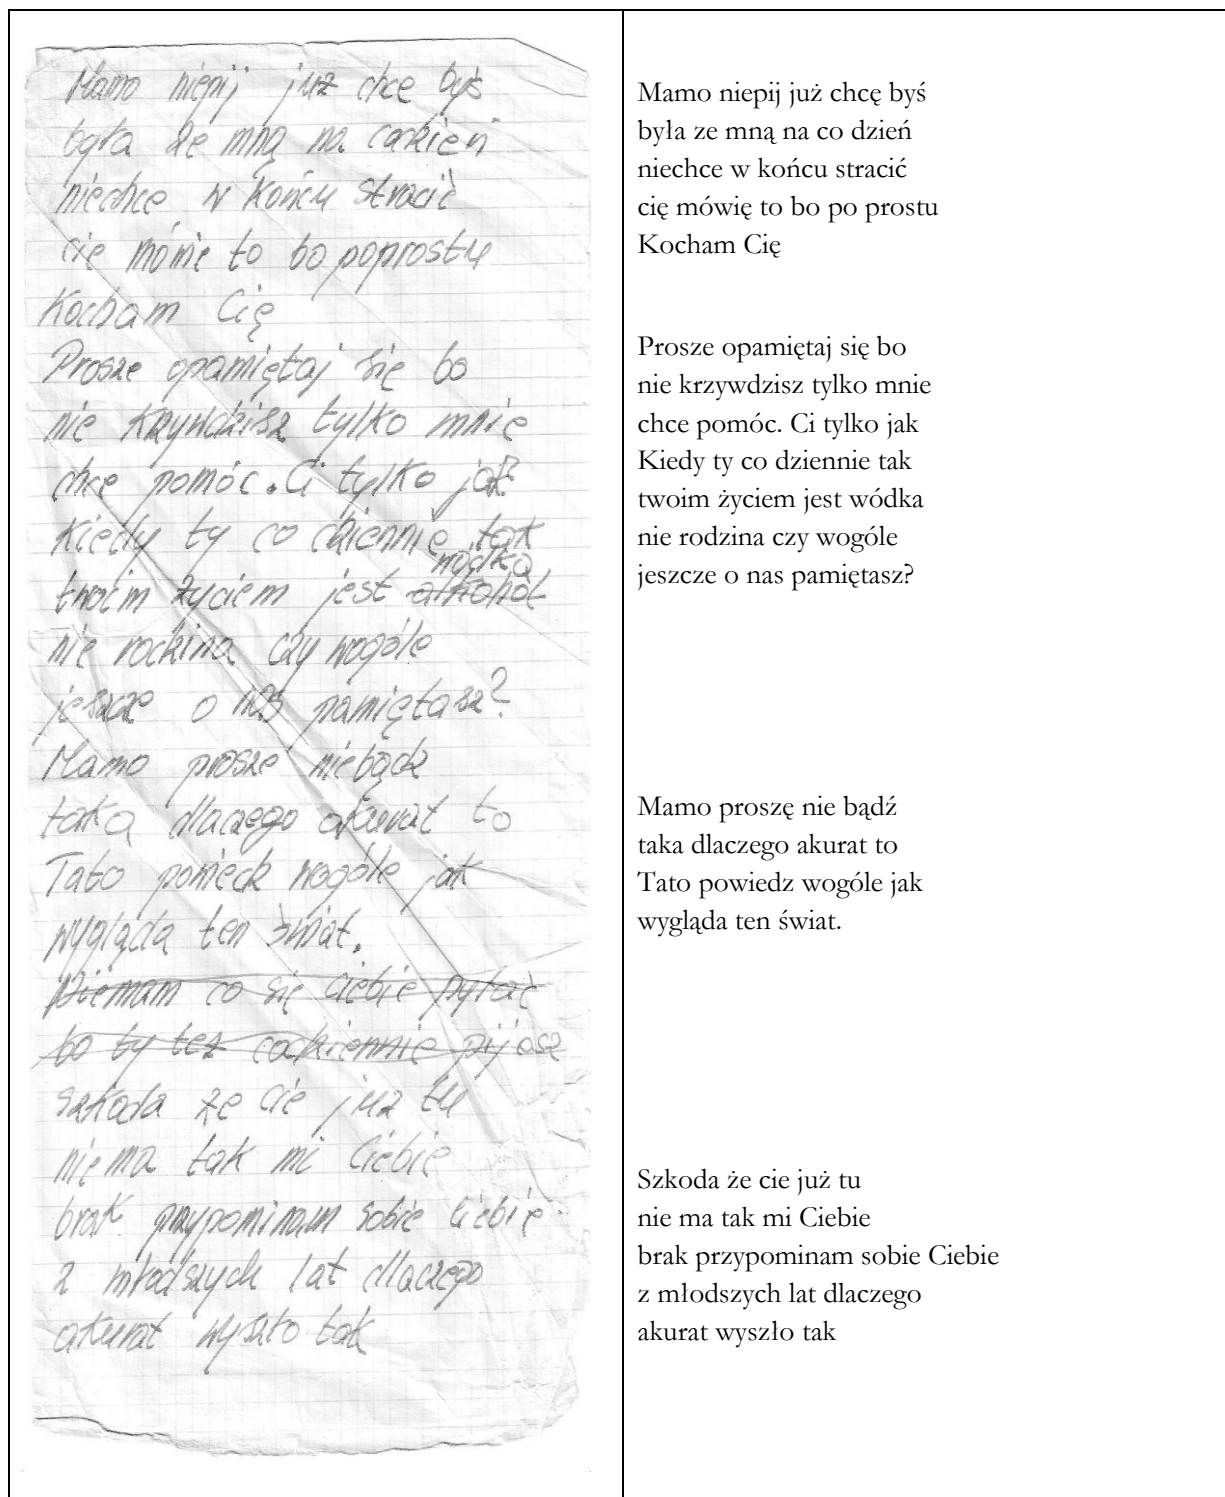 Mamo niepij już chcę byś
była ze mną na codzień
niechce w końcu stracić
cię mówię to bo poprostu
Kocham Cię
Prosze opamiętaj się bo
nie krzywdzisz tylko mnie
chce pomóc. Ci tylko jak?
Kiedy ty co dziennie tak
wódka
twoim życiem jest alkohol
nie rodzina czy wogóle
jeszcze o nas pamiętasz?
Mamo prosze niebądz
taka dlaczego akurat to
Tato powiedz wogóle jak
wygląda ten świat.
Niemam co się ciebie pytać
bo ty tez codziennie pijesz
szkoda że cie już tu
niema tak mi Ciebie
brak przypominam sobie Ciebie
z młodszych lat dlaczego
akurat wyszło tak
Mamo niepij już chcę byś
była ze mną na co dzień
niechce w końcu stracić
cię mówię to bo po prostu
Kocham Cię
Prosze opamiętaj się bo
nie krzywdzisz tylko mnie
chce pomóc. Ci tylko jak
Kiedy ty co dziennie tak
twoim życiem jest wódka
nie rodzina czy wogóle
jeszcze o nas pamiętasz?
Mamo proszę nie bądź
taka dlaczego akurat to
Tato powiedz wogóle jak
wygląda ten świat.
Szkoda że cie już tu
nie ma tak mi Ciebie
brak przypominam sobie Ciebie
z młodszych lat dlaczego
akurat wyszło tak